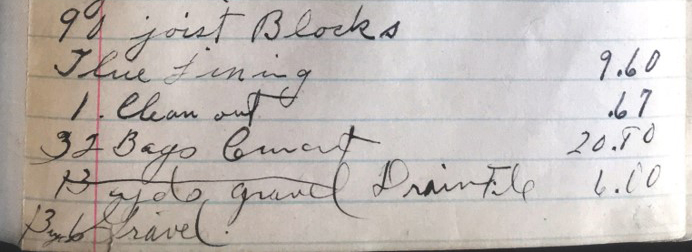 90 joist Blocks
Flue Lining 9.60
1. Clean out .67
32 Bags Cement 20.80
13 yds gravel Drain Tile 6.00
Gravel.